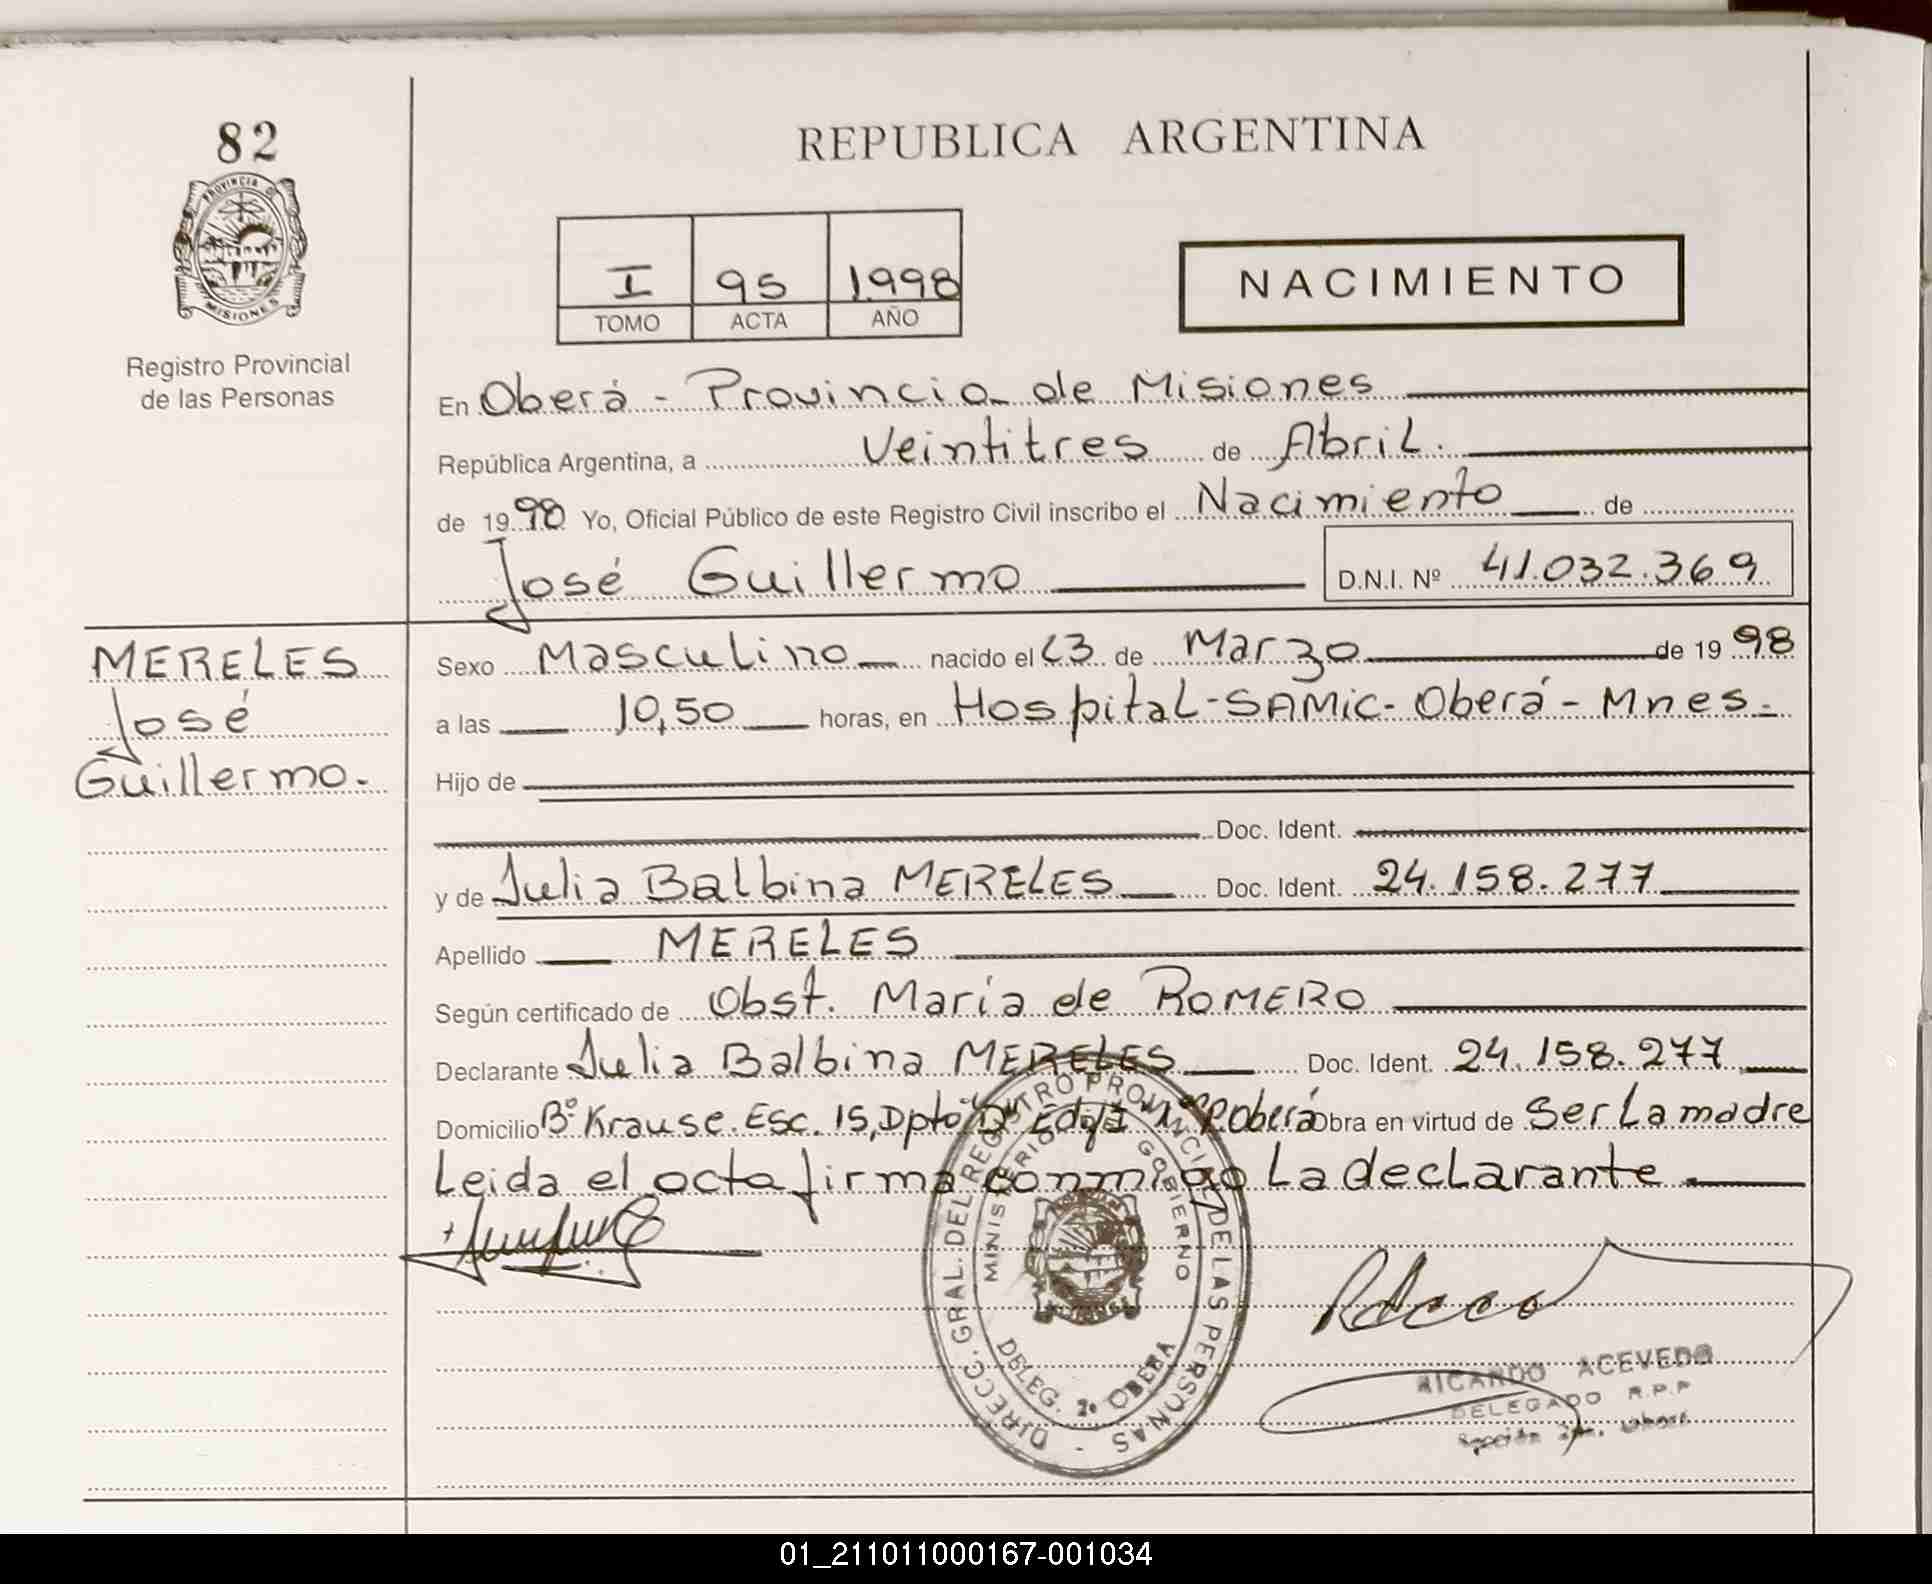 82
PROVINCIA D
MISIONES
Registro Provincial
de las Personas
REPUBLICA ARGENTINA
I 95 1998
TOMO ACTA AÑO
NACIMIENTO
En Oberá - Provincia de Misiones
República Argentina, a Veintitres de Abril.
de 19 98 Yo, Oficial Público de este Registro Civil inscribo el Nacimiento de
José Guillermo D.N.I. Nº 41.032.369
MERELES
José
Guillermo.-
Sexo Masculino nacido el 23 de Marzo de 19 98
a las 10,50 horas, en Hospital-SAMic- Oberá - Mnes.-
Hijo de
Doc. Ident.
y de Julia Balbina MERELES Doc. Ident. 24.158.277
Apellido MERELES
Según certificado de Obst. María de ROMERO
Declarante Julia Balbina MERELES Doc. Ident. 24.158.277
Domicilio Bº Krause. Esc. 15, Dpto "D" Oberá Obra en virtud de Ser La madre
Leida el acta firma conmigo La declarante
DIRECC. GRAL. DEL REGISTRO PROVINCIAL DE LAS PERSONAS -
MINISTERIO GOBIERNO
DELEG. 2º OBERA
RICARDO ACEVEDO
DELEGADO R.P.P
01_211011000167-001034